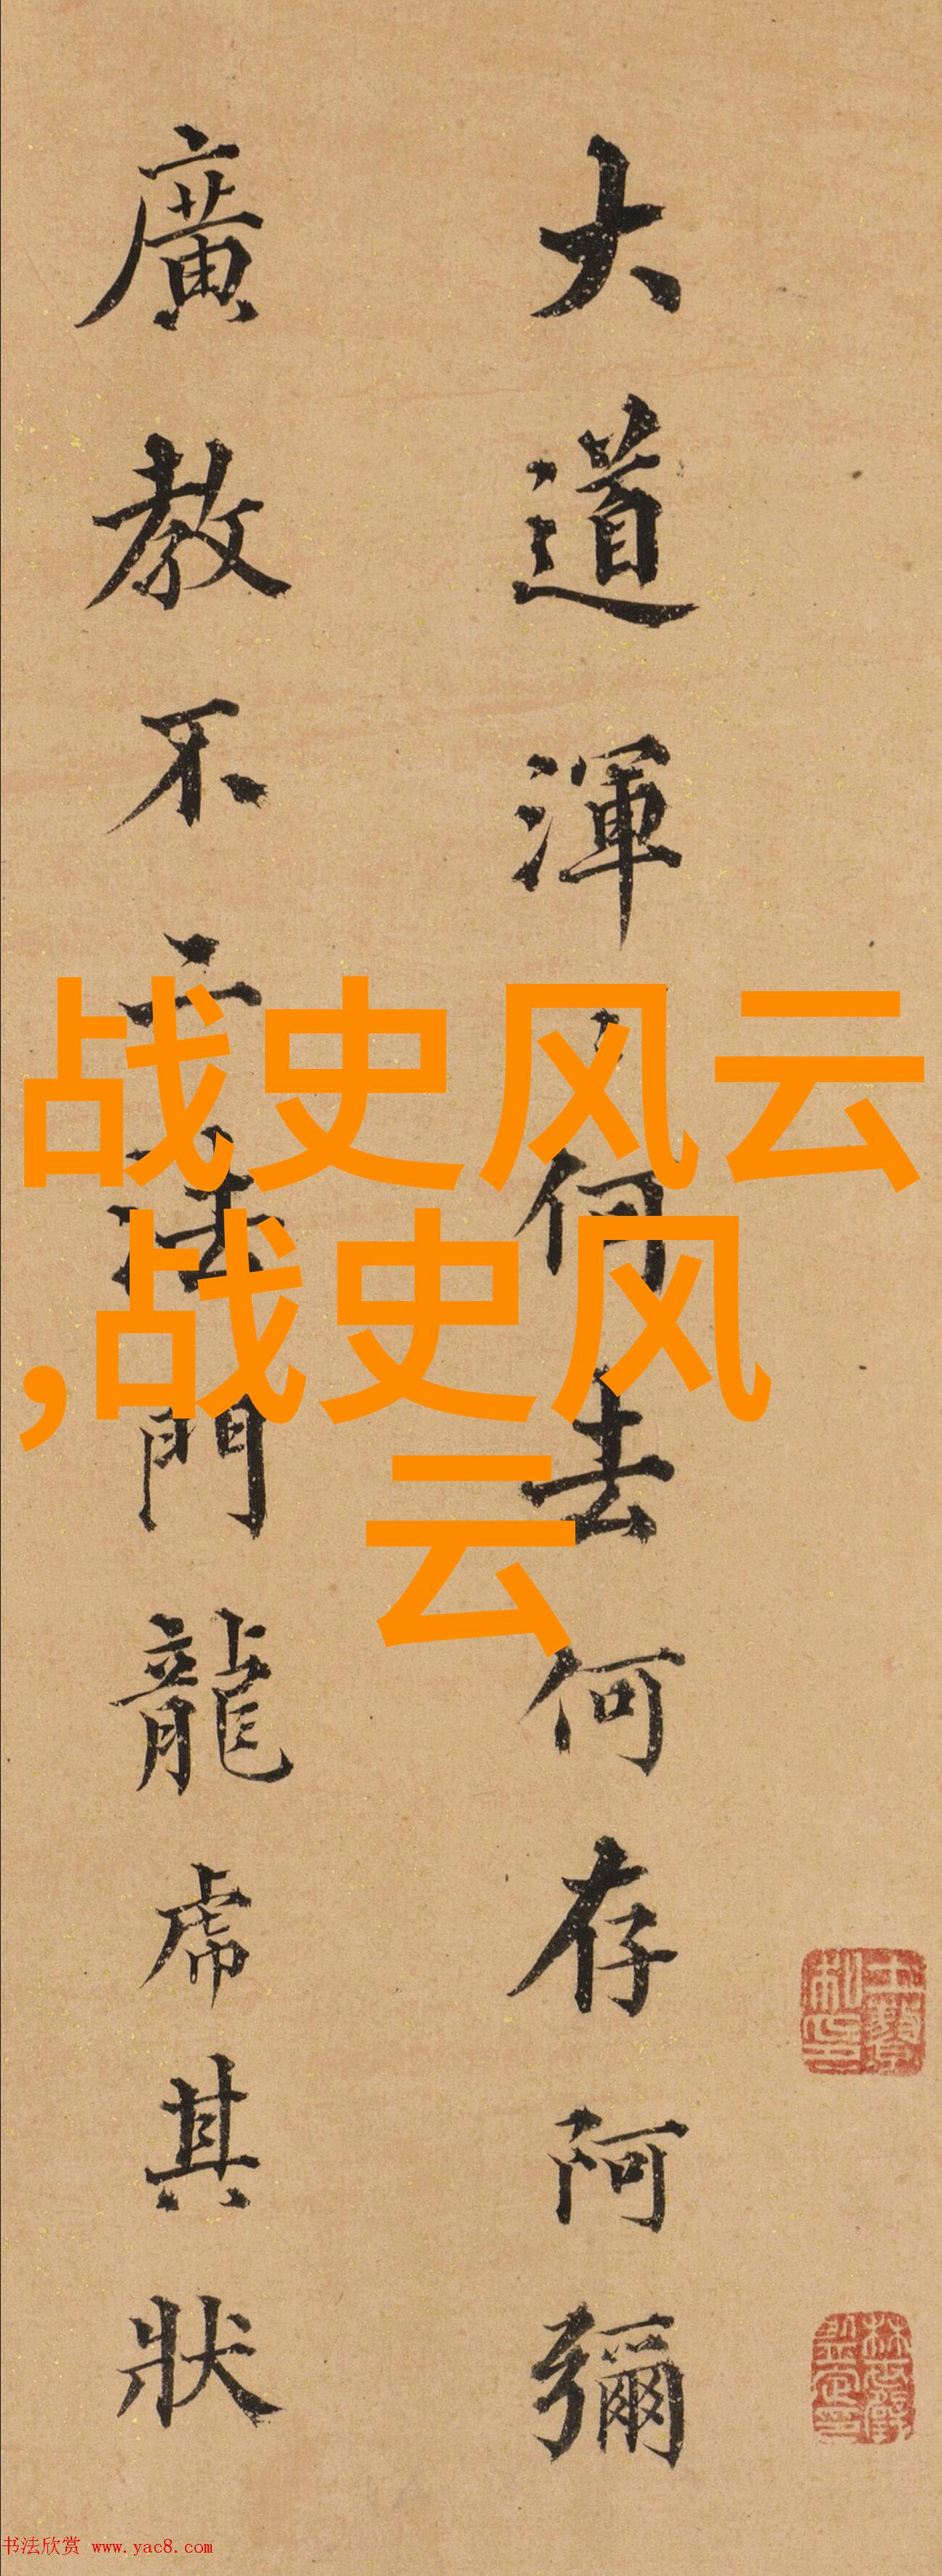 大道渾何去何存阿彌
廣教不二法門龍虎其狀
战史风云
,战史风
云
书法欣赏 www.yac8.com